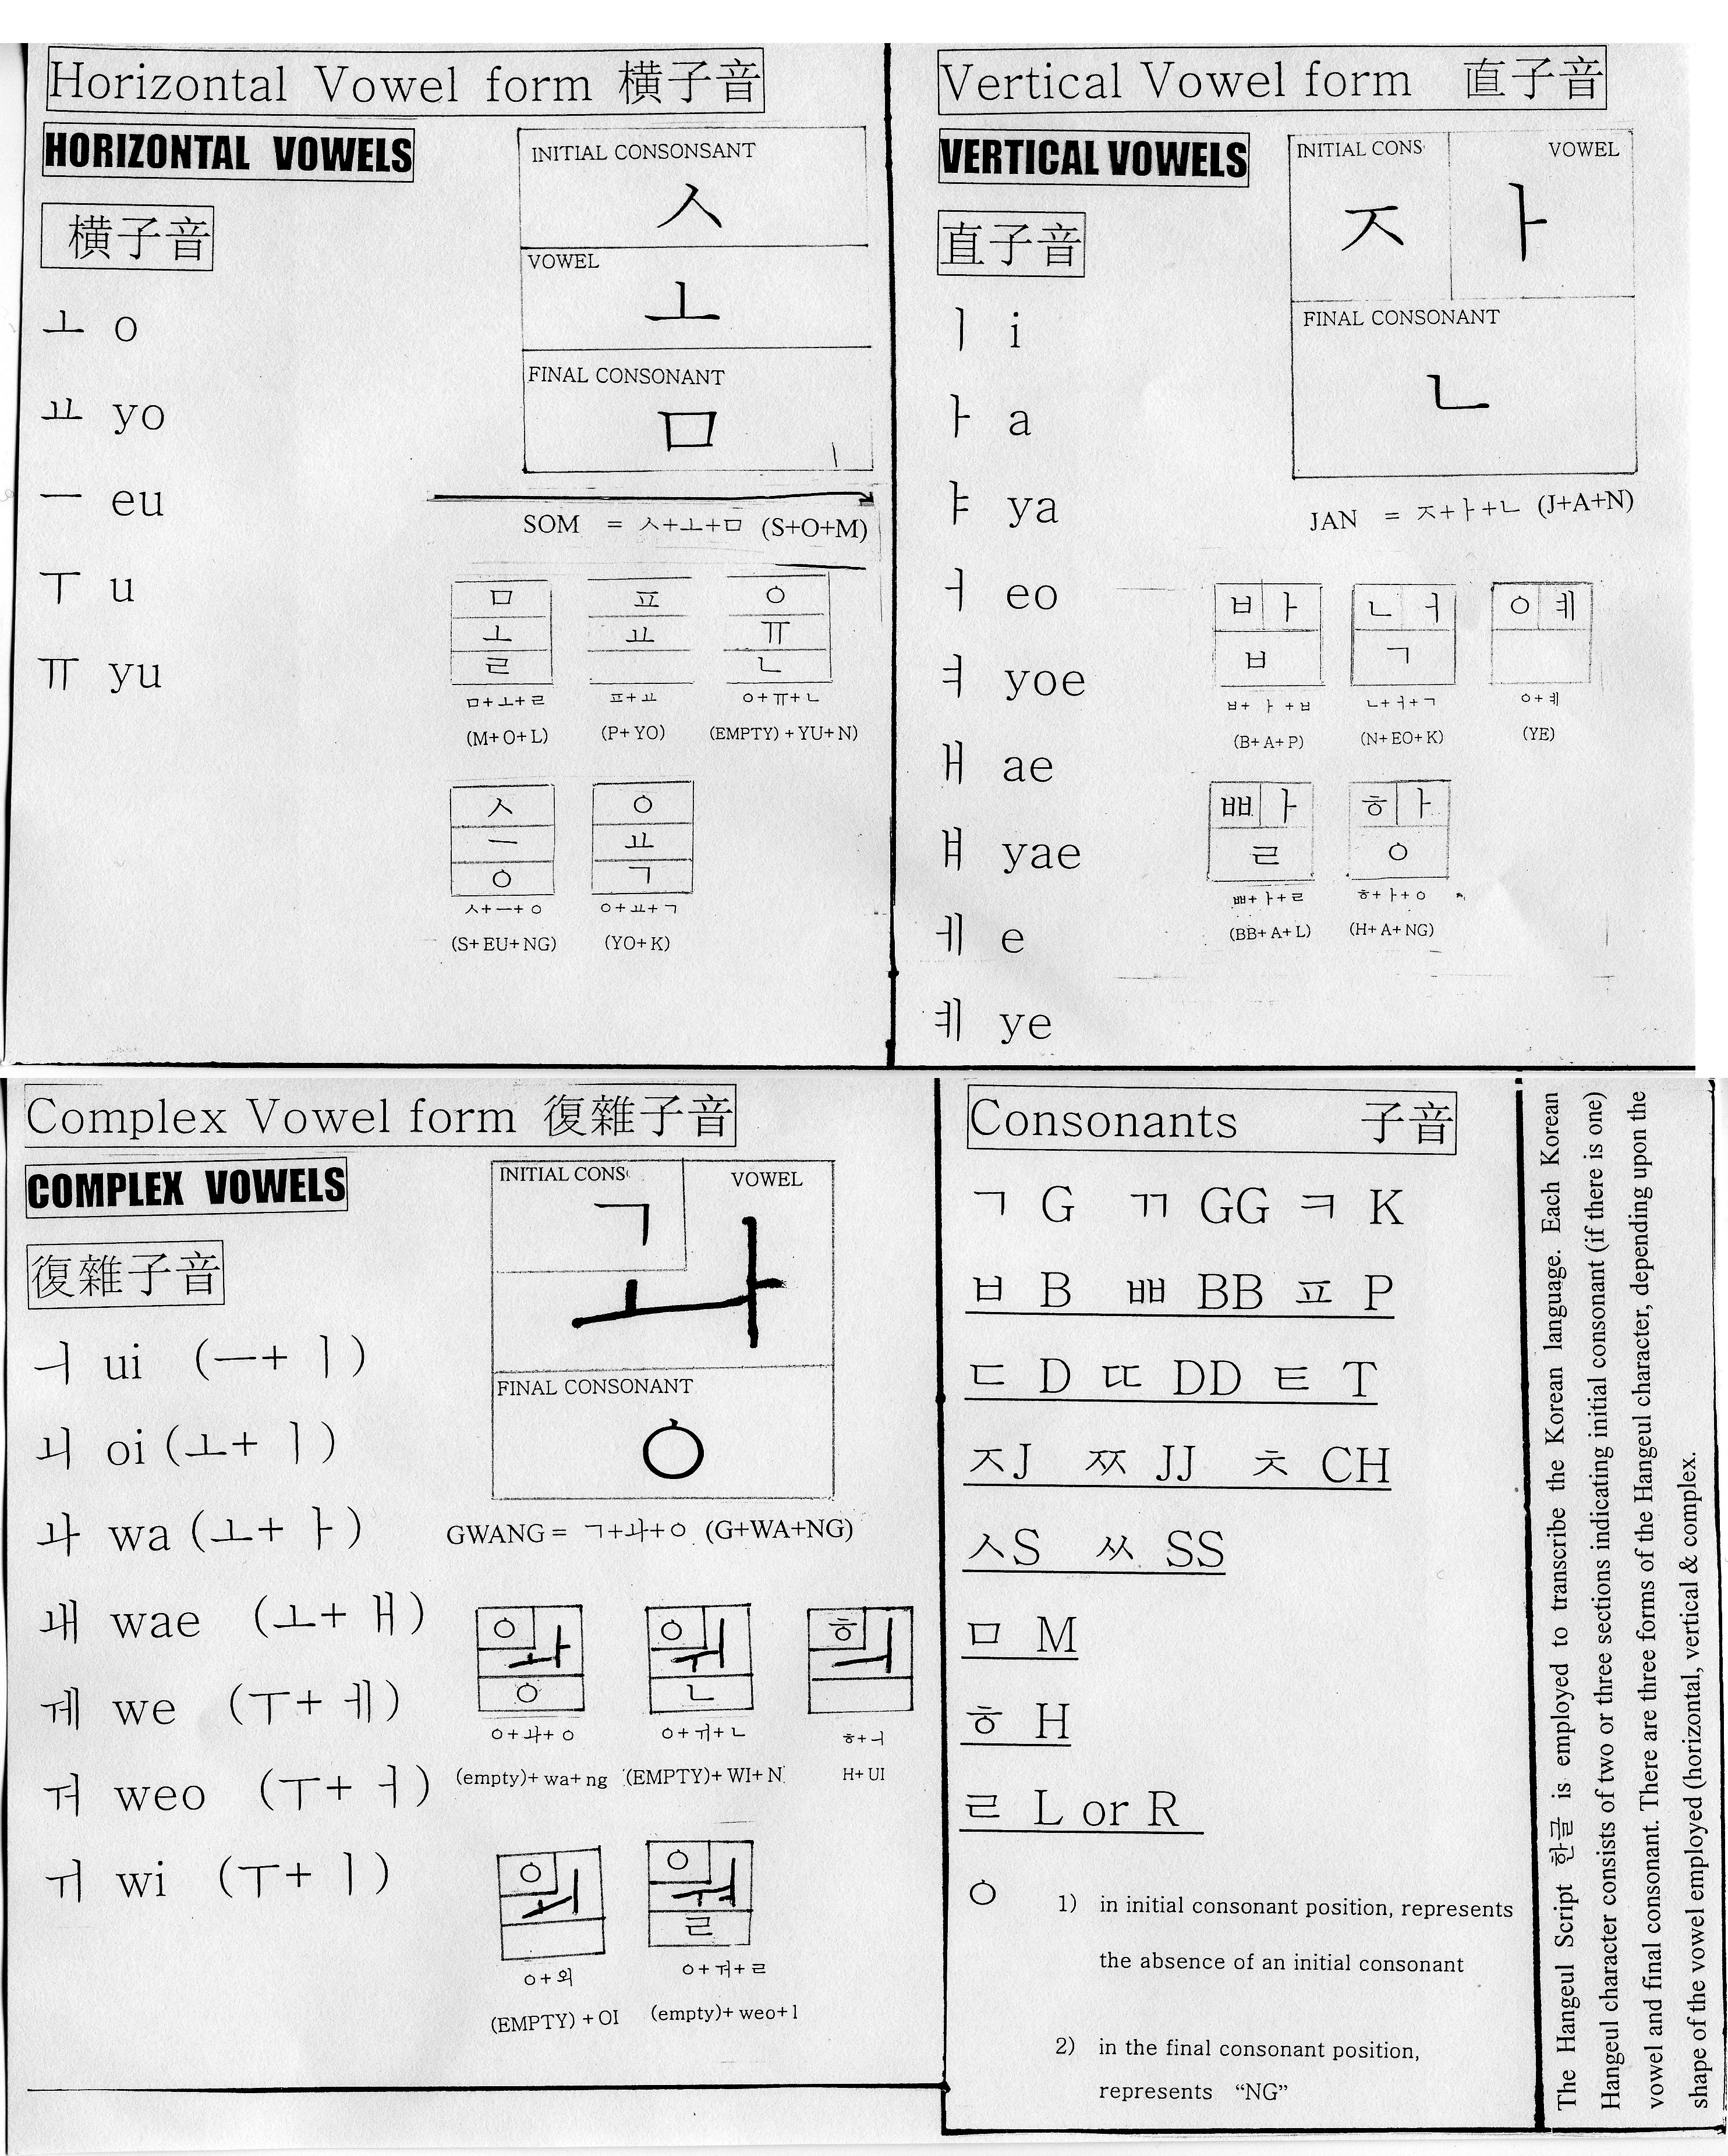 Horizontal Vowel form 橫子音
HORIZONTAL VOWELS
橫子音
ㅗ o
ㅛ yo
ㅡ eu
ㅜ u
ㅠ yu
INITIAL CONSONSANT
ㅅ
VOWEL
ㅗ
FINAL CONSONANT
ㅁ
SOM = ㅅ+ㅗ+ㅁ (S+O+M)
ㅁ ㅍ ㅇ
ㅗ ㅛ ㅠ
ㄹ ㄴ
ㅁ+ㅗ+ㄹ ㅍ+ㅛ ㅇ+ㅠ+ㄴ
(M+O+L) (P+YO) (EMPTY)+YU+N)
ㅅ ㅇ
ㅡ ㅛ
ㅇ ㄱ
ㅅ+ㅡ+ㅇ ㅇ+ㅛ+ㄱ
(S+EU+NG) (YO+K)
Vertical Vowel form 直子音
VERTICAL VOWELS
直子音
ㅣ i
ㅏ a
ㅑ ya
ㅓ eo
ㅕ yoe
ㅐ ae
ㅒ yae
ㅔ e
ㅖ ye
INITIAL CONS VOWEL
ㅈ ㅏ
FINAL CONSONANT
ㄴ
JAN = ㅈ+ㅏ+ㄴ (J+A+N)
ㅂ ㅏ ㄴ ㅓ ㅇ ㅖ
ㅂ ㄱ
ㅂ+ㅏ+ㅂ ㄴ+ㅓ+ㄱ ㅇ+ㅖ
(B+A+P) (N+EO+K) (YE)
ㅃ ㅏ ㅎ ㅏ
ㄹ ㅇ
ㅃ+ㅏ+ㄹ ㅎ+ㅏ+ㅇ
(BB+A+L) (H+A+NG)
Complex Vowel form 復雜子音
COMPLEX VOWELS
復雜子音
ㅢ ui (ㅡ+ㅣ)
ㅚ oi (ㅗ+ㅣ)
ㅘ wa (ㅗ+ㅏ)
ㅙ wae (ㅗ+ㅐ)
ㅞ we (ㅜ+ㅔ)
ㅝ weo (ㅜ+ㅓ)
ㅟ wi (ㅜ+ㅣ)
INITIAL CONS VOWEL
ㄱ ㅘ
FINAL CONSONANT
ㅇ
GWANG = ㄱ+ㅘ+ㅇ (G+WA+NG)
ㅇ ㅘ ㅇ ㅟ ㅎ ㅢ
ㅇ ㄴ
ㅇ+ㅘ+ㅇ ㅇ+ㅟ+ㄴ ㅎ+ㅢ
(empty)+wa+ng (EMPTY)+WI+N H+UI
ㅇ ㅚ ㅇ ㅝ
ㄹ
ㅇ+외 ㅇ+ㅝ+ㄹ
(EMPTY)+OI (empty)+weo+l
Consonants 子音
ㄱ G ㄲ GG ㅋ K
ㅂ B ㅃ BB ㅍ P
ㄷ D ㄸ DD ㅌ T
ㅈJ ㅉ JJ ㅊ CH
ㅅS ㅆ SS
ㅁ M
ㅎ H
ㄹ L or R
ㅇ 1) in initial consonant position, represents
the absence of an initial consonant
2) in the final consonant position,
represents "NG"
The Hangeul Script 한글 is employed to transcribe the Korean language. Each Korean
Hangeul character consists of two or three sections indicating initial consonant (if there is one)
vowel and final consonant. There are three forms of the Hangeul character, depending upon the
shape of the vowel employed (horizontal, vertical & complex.